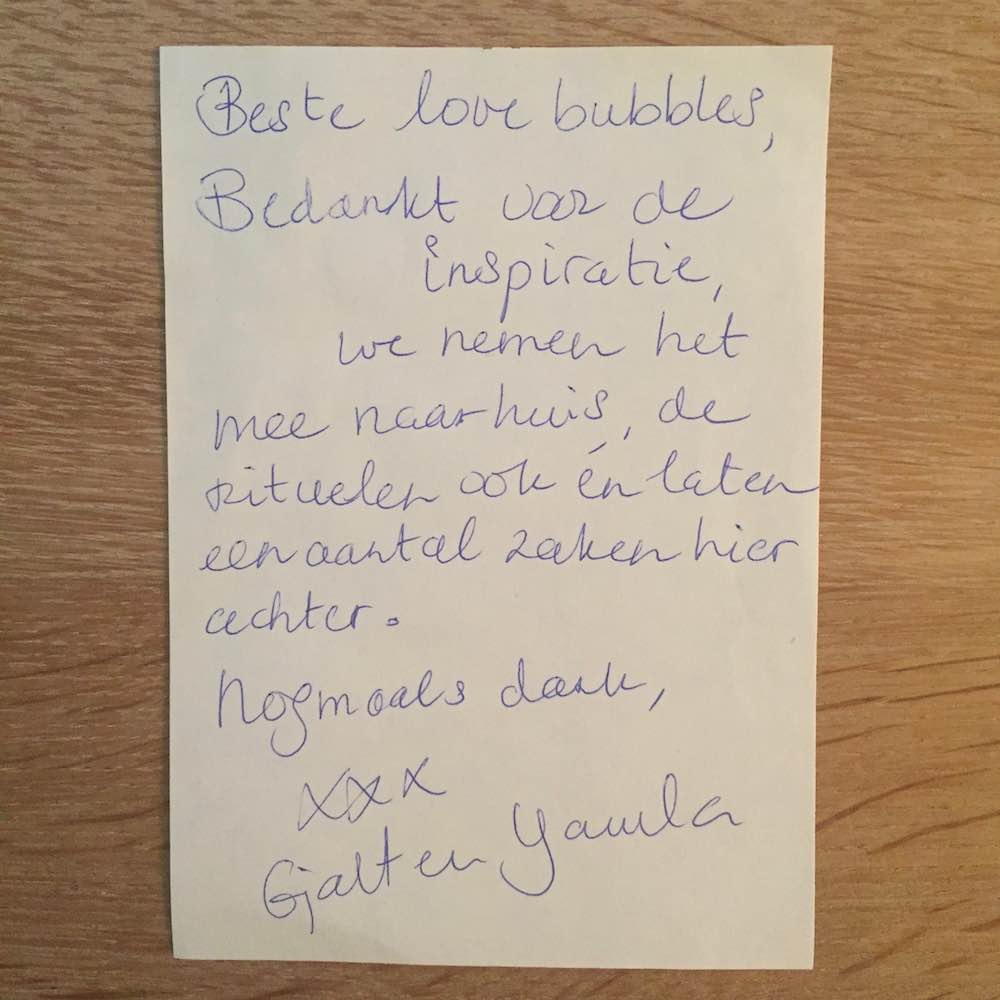 Beste love bubbles,
Bedankt voor de
inspiratie,
we nemen het
mee naar huis, de
rituelen ook én laten
een aantal zaken hier
achter.
Nogmaals dank,
xxx
Gjalt en